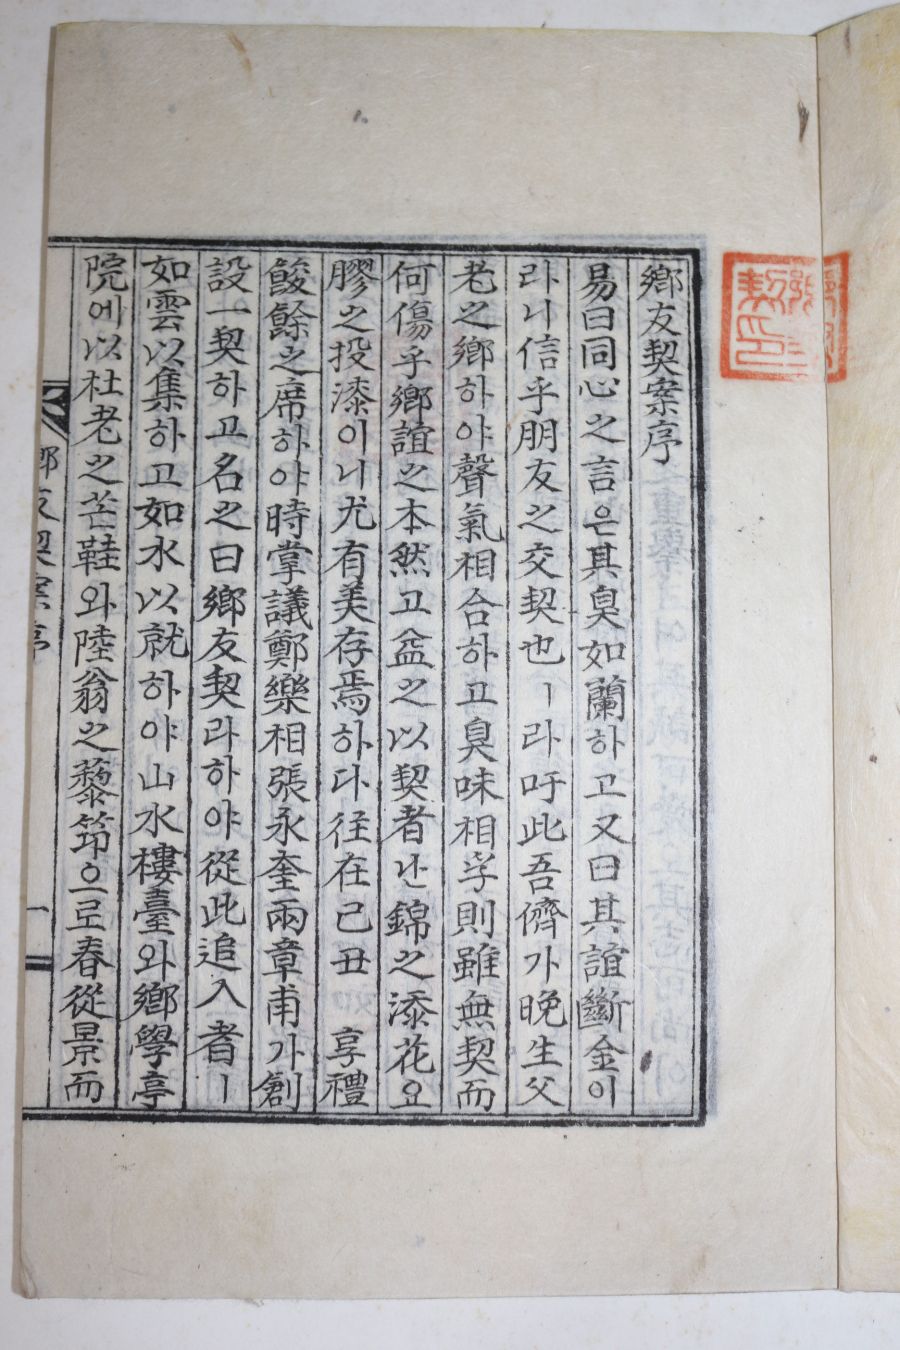 鄕友契案序
易曰同心之言은其臭如蘭하고又曰其誼斷金이
라니信乎朋友之交契也ㅣ라吁此吾儕가晩生父
老之鄕하야聲氣相合하고臭味相孚則雖無契而
何傷乎鄕誼之本然고益之以契者난錦之添花요
膠之投漆이니尤有美存焉하다徃在己丑 享禮
餕餘之席하야時掌議鄭樂相張永奎兩章甫가創
設一契하고名之曰鄕友契라하야從此追入者ㅣ
如雲以集하고如水以就하야山水樓臺와鄕學亭
院에以杜老之芒鞋와陸翁之藜筇으로春從景而
鄕友契案序
一